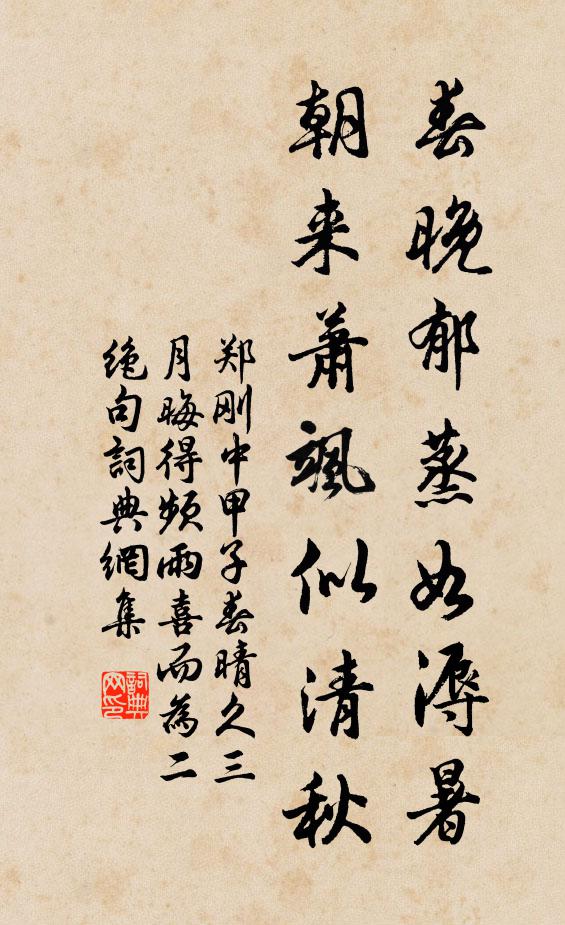 春晚郁蒸如溽暑
朝来萧飒似清秋
郑刚中甲子春晴久三
月晦得频雨喜而為二
绝句詞典網集
詞典
网印